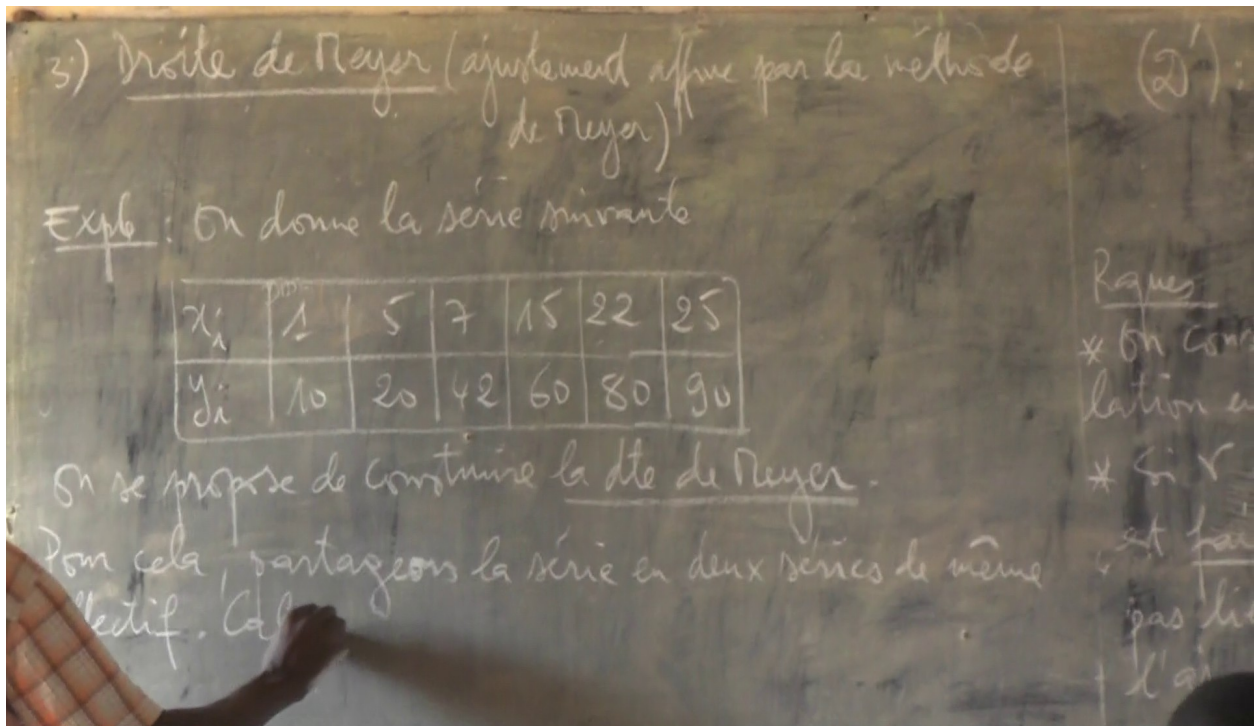 3.) Droite de Meyer (ajustement affine par la méthode
de Meyer)
Exple : On donne la série suivante
xi 1 5 7 15 22 25
yi 10 20 42 60 80 90
On se propose de construire la dte de Meyer.
Pour cela, partageons la série en deux séries de même
. Cal
(D') :
Rques
* On
lation
* Si r
est
pas
l'